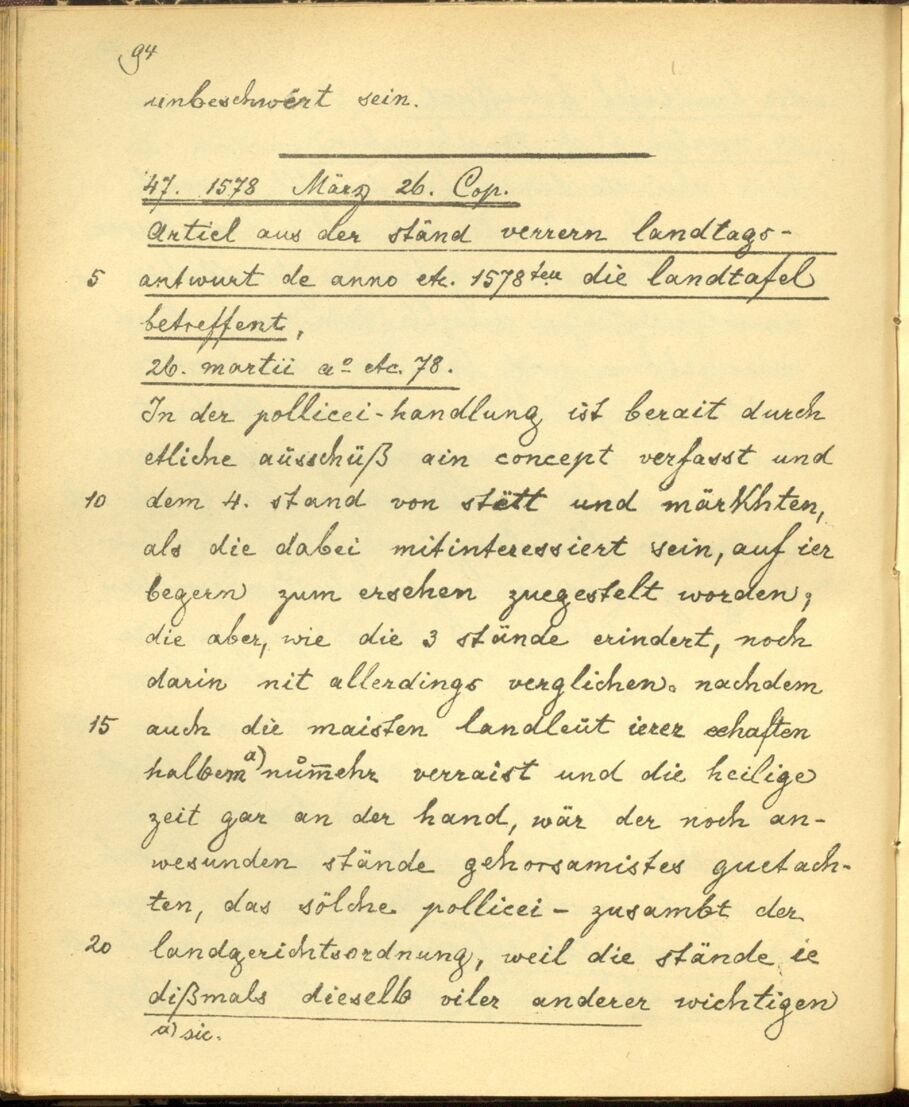 94
unbeschwert sein.
47. 1578 März 26. Cop.
Articl aus der ständ verrern landtags-
5 antwurt de anno etc. 1578ten die landtafel
betreffent,
26. martii ao etc. 78.
In der pollicei-handlung ist berait durch
etliche aüsschüß ain concept verfasst und
10 dem 4. stand von stëtt und märkhten,
als die dabei mitinteressiert sein, auf ier
begern zum ersehen zuegestelt worden;
die aber, wie die 3 stände erindert, noch
darin nit allerdings verglichen. nachdem
15 auch die maisten landleüt ierer ehaften
halbem a) nům̅ehr verraist und die heilige
zeit gar an der hand, wär der noch an-
wesunden stände gehorsamistes guetach-
ten, das sölche pollicei- zusambt der
20 landgerichtsordnung, weil die stände ie
dißmals dieselb viler anderer wichtigen
a) sic.